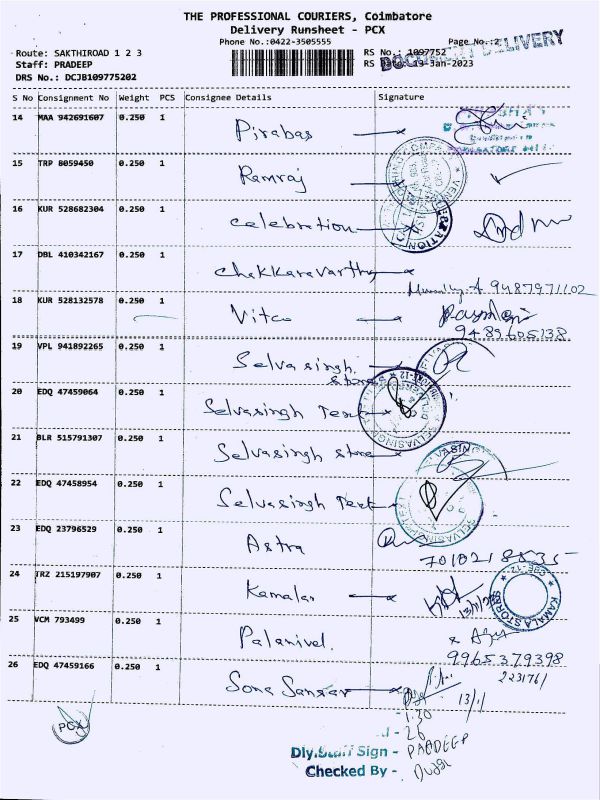 THE PROFESSIONAL COURIERS, Coimbatore
Delivery Runsheet - PCX
Phone No.:0422-3505555
Page No.:2
DOCUMENT DELIVERY
Route: SAKTHIROAD 1 2 3
RS No.: 1097752
Staff: PRADEEP
RS 13-Jan-2023
DRS No.: DCJB109775202
S No Consignment No Weight PCS Consignee Details Signature
14 MAA 942691607 0.250 1 Pirabas
15 TRP 8059450 0.250 1 Ramraj
16 KUR 528682304 0.250 1 celebration
17 DBL 410342167 0.250 1 Chakkaravarthy
9487971102
18 KUR 528132578 0.250 1 Vitco
9489605138
19 VPL 941892265 0.250 1 Selvasingh
store
20 EDQ 47459064 0.250 1 Selvasingh Text
21 BLR 515791307 0.250 1 Selvasingh store
22 EDQ 47458954 0.250 1 Selvasingh Text
23 EDQ 23796529 0.250 1 Astra
24 TRZ 215197907 0.250 1 Kamalas
KAMALA STORES
CBE-12
25 VCM 793499 0.250 1 Palanivel
9965379398
26 EDQ 47459166 0.250 1 Sona Sansar
223176/
13/1
1.30
PCX
26
Dly.Staff Sign - PARDEEP
Checked By -